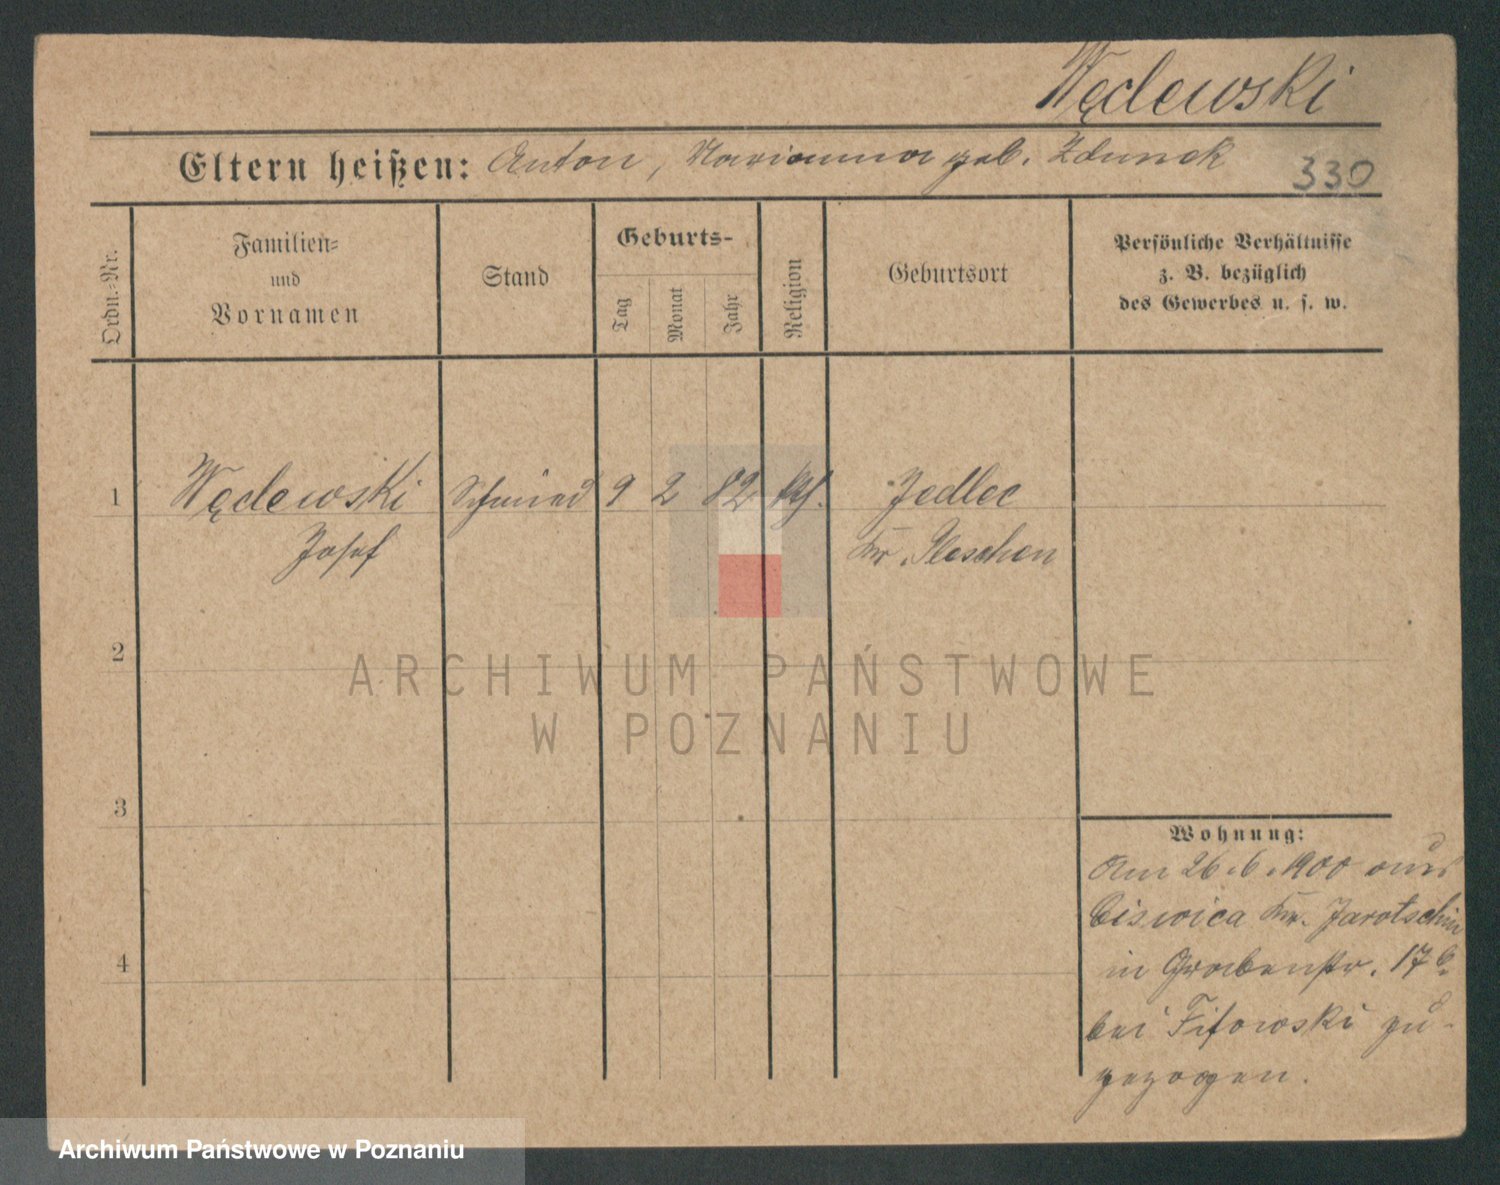 Wędewski
Eltern heißen: Anton, Marianna geb. Zdunek
330
Ordn.-Nr.
Familien-
und
Vornamen
Stand
Geburts-
Tag
Monat
Jahr
Religion
Geburtsort
Persönliche Verhältnisse
z. B. bezüglich
des Gewerbes u. s. w.
1 Wędewski Schmied 9 2 82 kth. Jedlec
Josef Kr. Pleschen
2
3
4
Wohnung:
Am 26.6.1900 aus
Ciswica Kr. Jarotschin
in Grabenstr. 17
bei zu-
gezogen.
ARCHIWUM PAŃSTWOWE
W POZNANIU
Archiwum Państwowe w Poznaniu